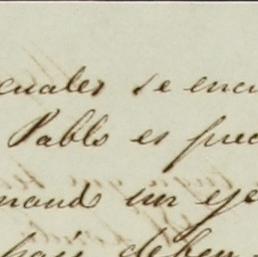 cuales se encu
Pablo es prec
mand un eje
pais deben